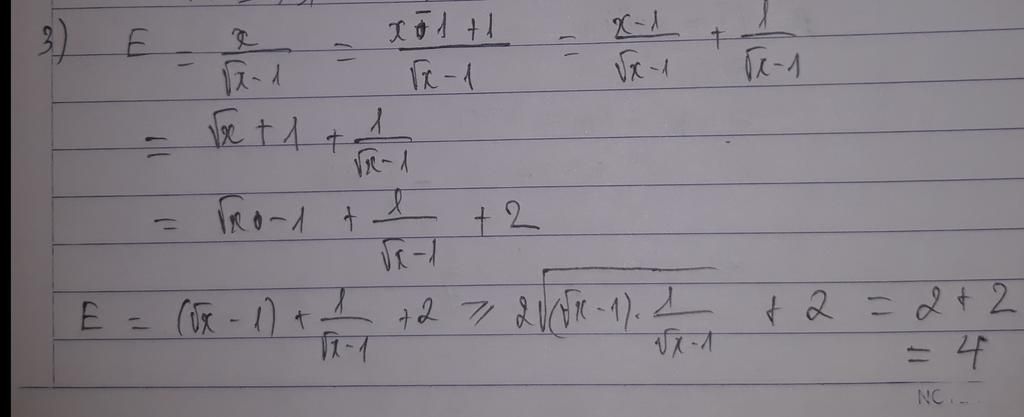 3) E = x/(√x-1) = (x-1+1)/(√x-1) = (x-1)/(√x-1) + 1/(√x-1)
= √x + 1 + 1/(√x-1)
= √x - 1 + 1/(√x-1) + 2
E = (√x - 1) + 1/(√x-1) + 2 ⩾ 2√((√x-1).1/(√x-1)) + 2 = 2 + 2
= 4
NC